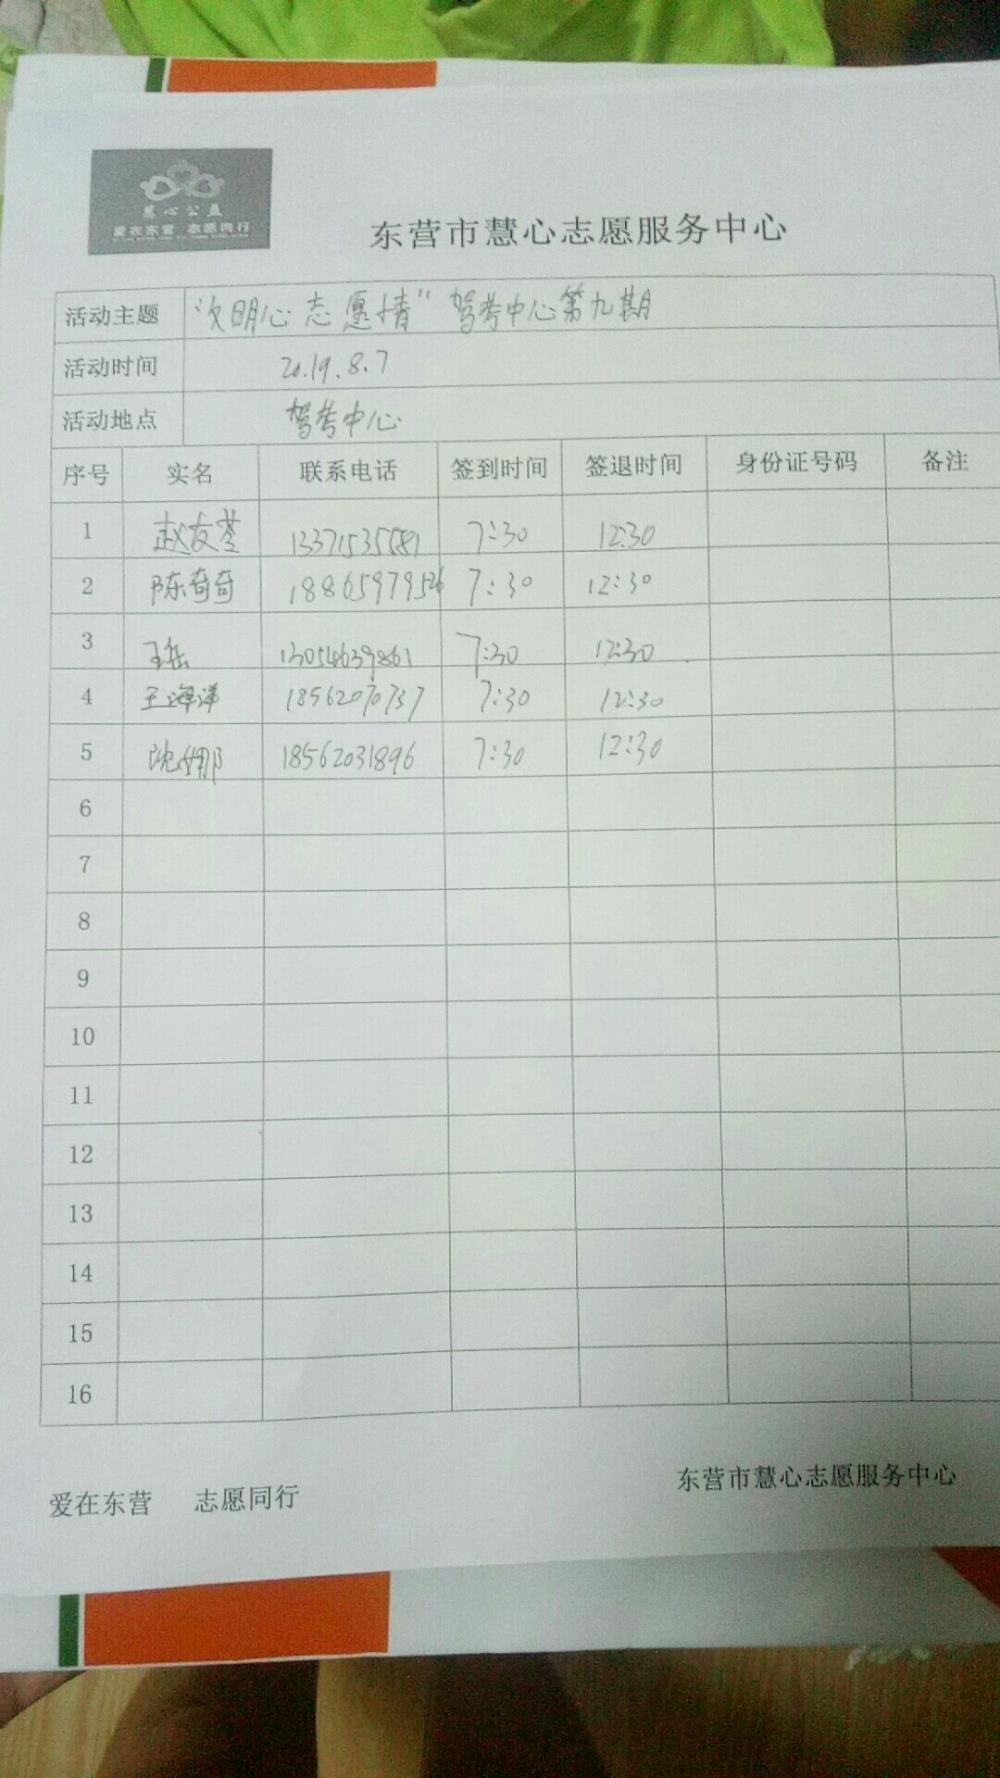 慧心公益
爱在东营 志愿同行
东营市慧心志愿服务中心
活动主题 "次明心志愿情" 驾考中心第九期
活动时间 2019.8.7
活动地点 驾考中心
序号 实名 联系电话 签到时间 签退时间 身份证号码 备注
1 赵友 13371535581 7:30 12:30
2 陈奇奇 18865979526 7:30 12:30
3 王岳 13054639861 7:30 12:30
4 王海洋 18562070737 7:30 12:30
5 沈娜 18562031896 7:30 12:30
6
7
8
9
10
11
12
13
14
15
16
爱在东营 志愿同行 东营市慧心志愿服务中心